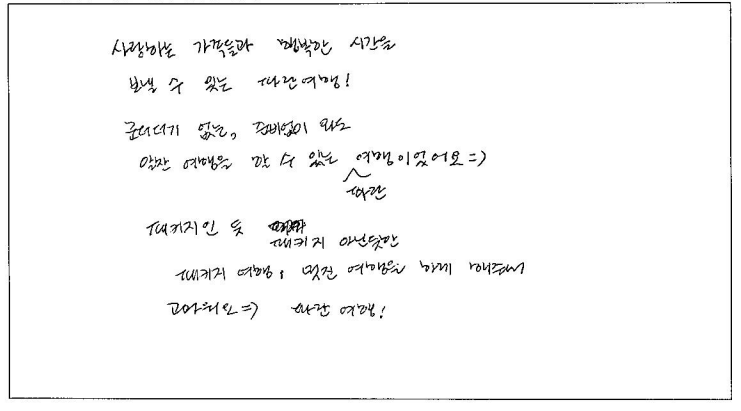 사랑하는 가족들과 행복한 시간을
보낼 수 있는 파란여행!
군더더기 없는, 준비없이 와도
알찬 여행을 할 수 있는 파란 여행이었어요=)
패키지인 듯 패키지 아닌듯한
패키지 여행! 멋진 여행을 하게 해주셔서
고마워요=) 파란 여행!